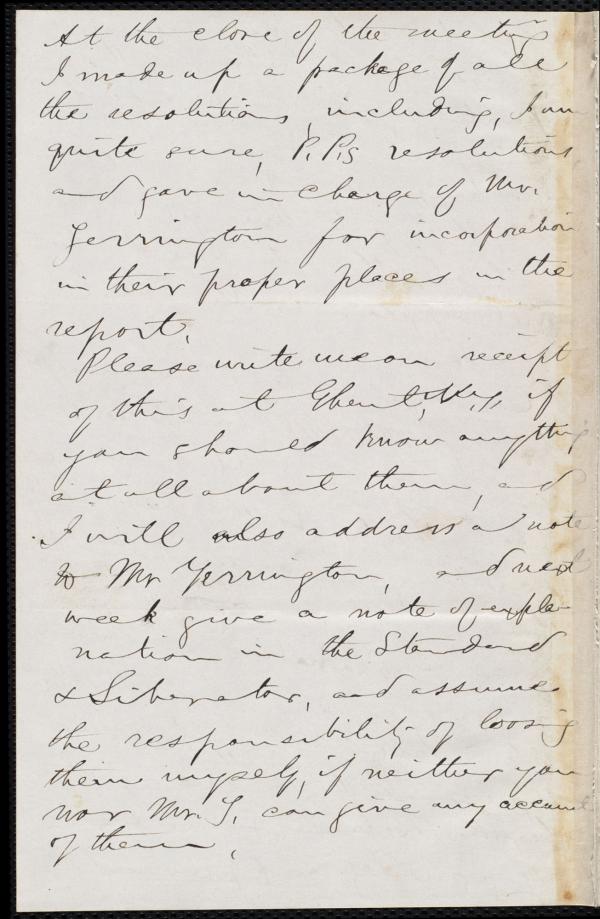 At the close of the meeting
I made up a package of all
the resolutions, including, I am
quite sure, P.P.s resolutions,
and gave in charge of Mr.
Yerrington for incorporation
in their proper places in the
report.
Please write me on receipt
of this at Ghent, Ky, if
you should know anything
at all about them, and
I will also address a note
to Mr Yerrington, and next
week give a note of expla-
nation in the Standard
& Liberator, and assume
the responsibility of loosing
them myself, if neither you
nor Mr. Y. can give any account
of them.